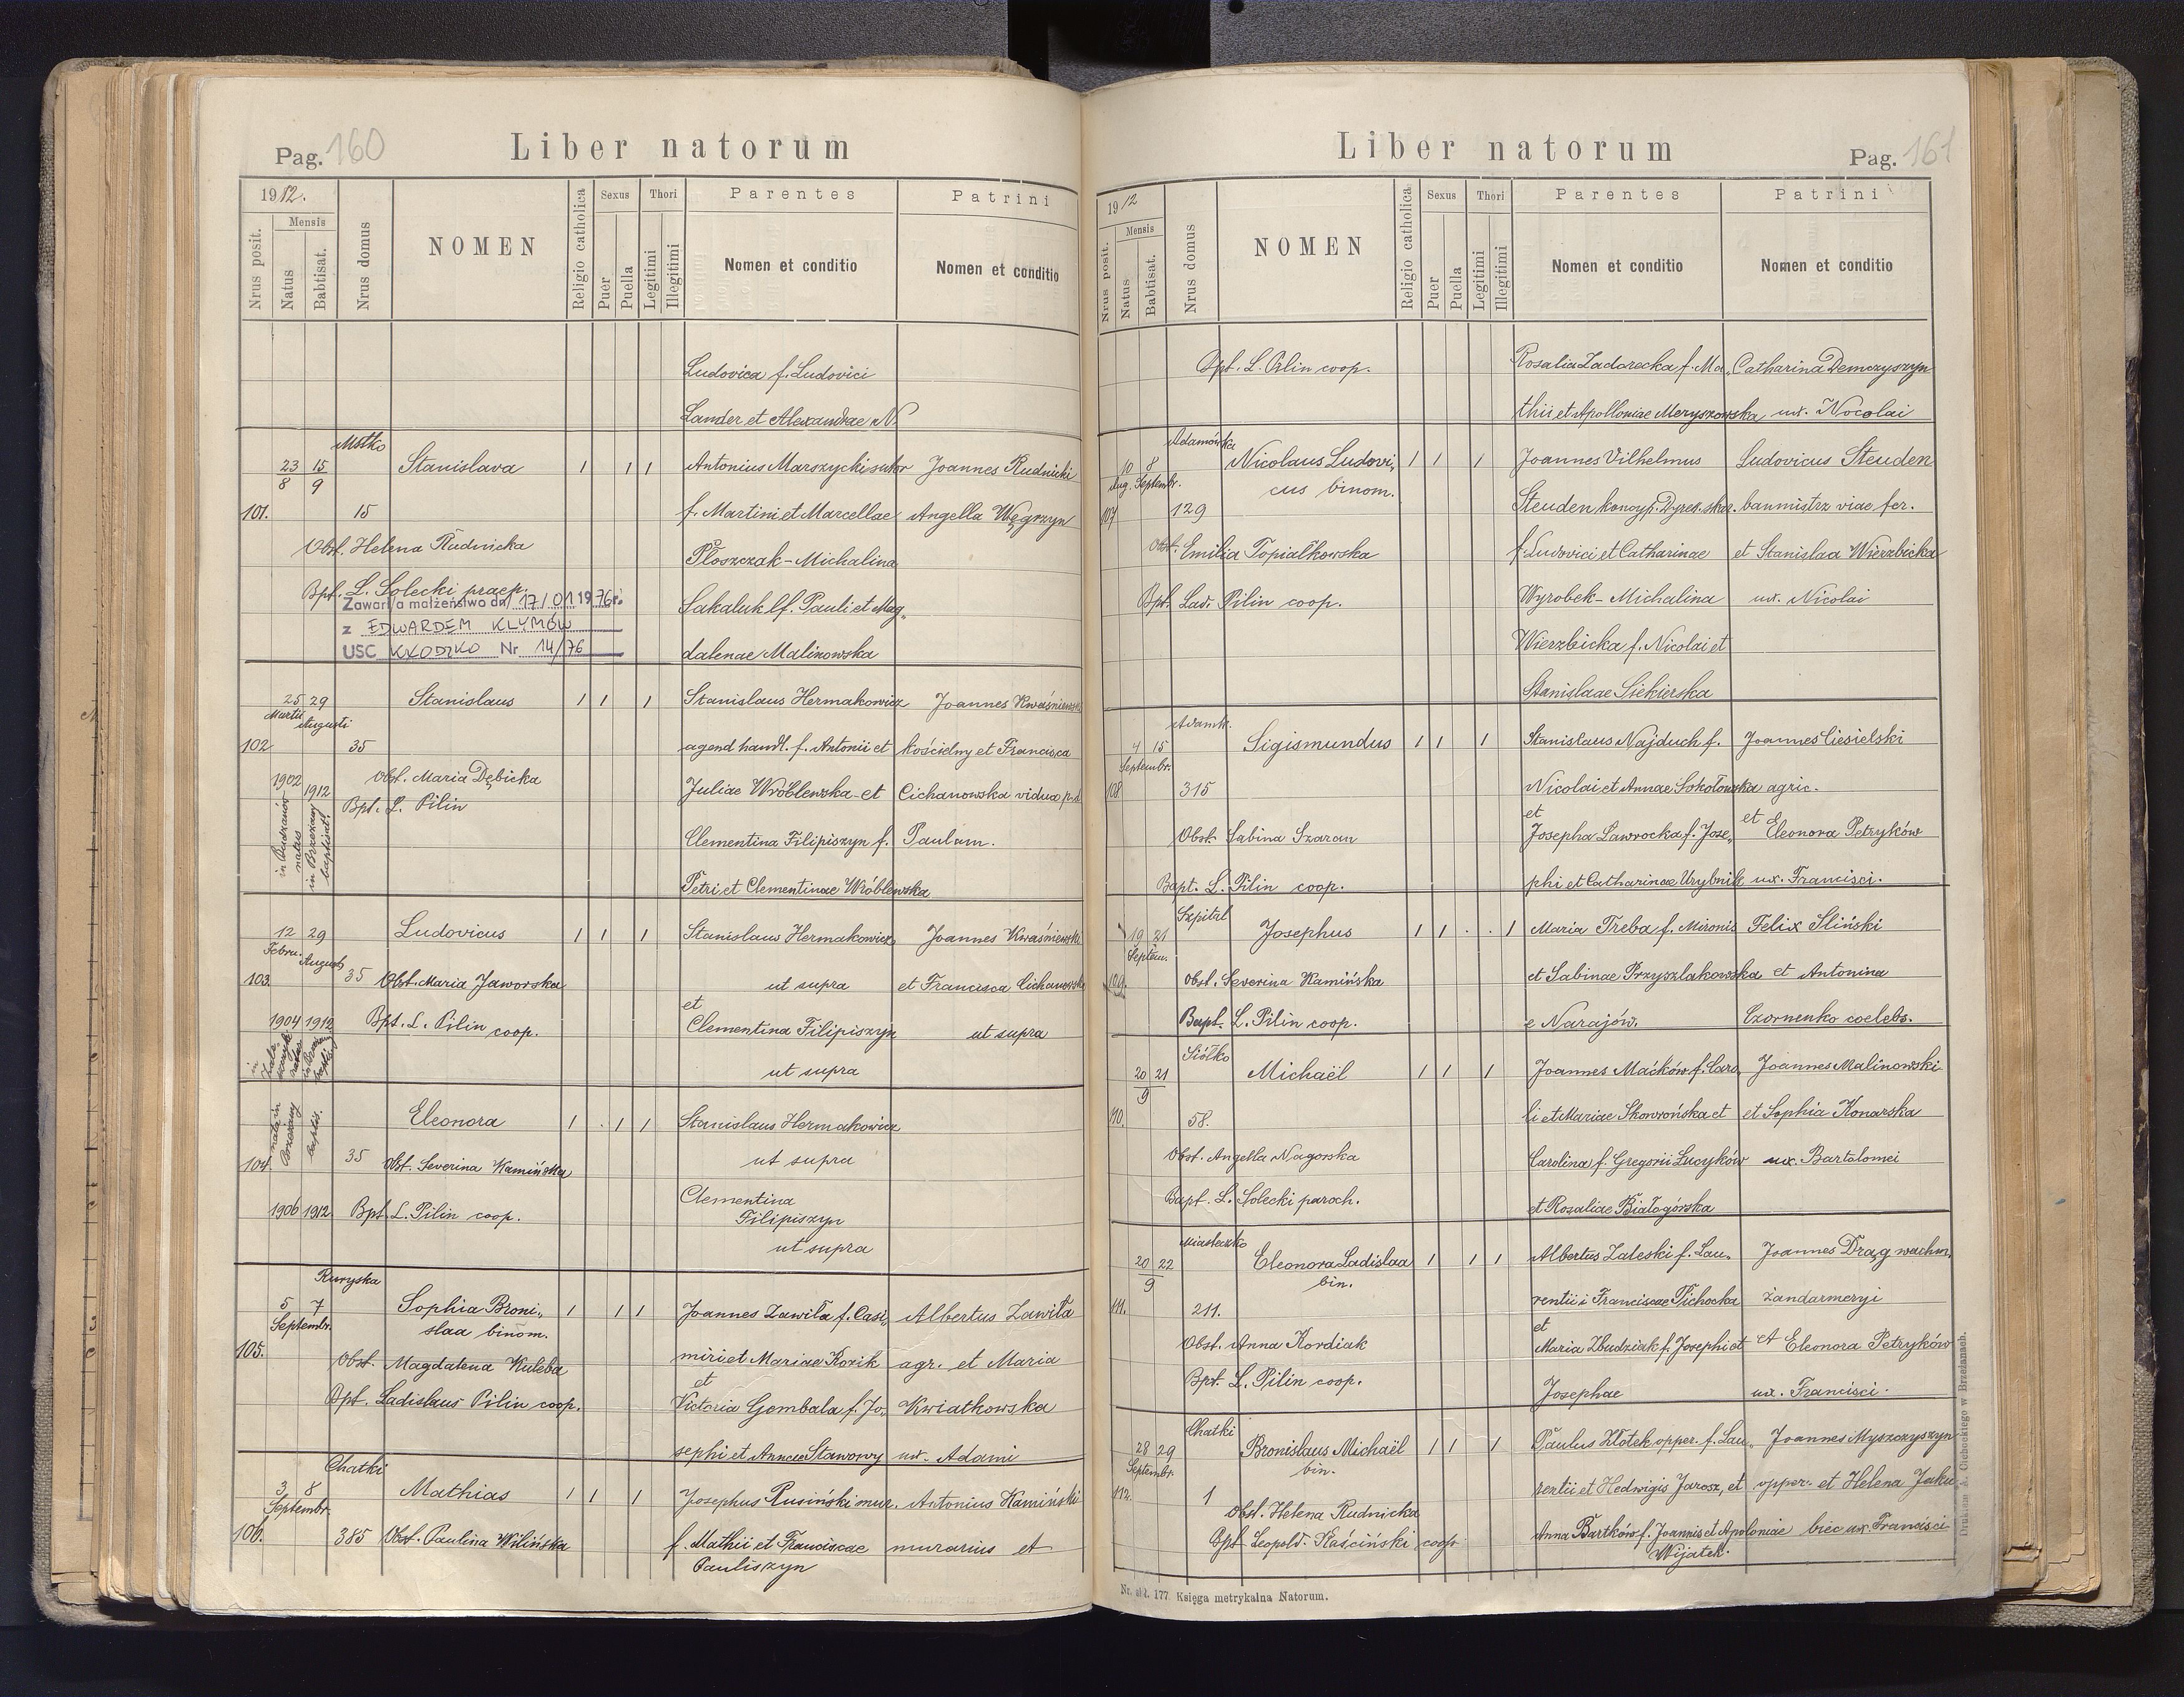 Pag. 160
Liber natorum
1912.
Nrus posit.
Mensis
Natus
Babtisat.
Nrus domus
NOMEN
Religio catholica
Sexus
Puer
Puella
Thori
Legitimi
Illegitimi
Parentes
Nomen et conditio
Patrini
Nomen et conditio
Ludovica f. Ludovici
Lander et Alexandrae N
Mstko
23 15 Stanislava 1 1 1 Antonius Marszycki sutor Joannes Rudnicki
8 9
101. 15 f. Martini et Marcellae Angella Węgrzyn
Obst. Helena Rudnicka
Płoszczak - Michalina
Bpt. L. Solecki praep.
Zawarła małżeństwo dn. 17/01 1976 r.
Sakaluk lf. Pauli et Mag„
z EDWARDEM KLYMÓW
USC KŁODZKO Nr 14/76
dalenae Malinowska
25 29 Stanislaus 1 1 1 Stanislaus Hermakowicz Joannes Kwaśniewski
Martii Augusti
102 35 agend handl. f. Antonii et kościelny et Francisca
1902 1912 Obst. Maria Dębicka
Juliae Wróblewska et Cichanowska vidua p.d
Bpt. L. Pilin
in natus
in Brzeżany baptisat.
Clementina Filipiszyn f. Paulum.
Petri et Clementinae Wróblewska
12 29 Ludovicus 1 1 1 Stanislaus Hermakowicz Joannes Kwaśniewski
Febru. Augusti
103. 35 Obst. Maria Jaworska ut supra et Francisca Cichanowska
et
1904 1912 Bpt. L. Pilin coop. Clementina Filipiszyn ut supra
ut supra
nata in Brzeżany
baptis.
Eleonora 1 . 1 1 Stanislaus Hermakowicz
104. 35 Obst. Severina Kamińska ut supra
1906 1912. Bpt. L. Pilin coop. Clementina
Filipiszyn
ut supra
Ruryska
5 7 Sophia Broni„ 1 1 1 Joannes Zawiła f. Casi„ Albertus Zawiła
Septembr. slaa binom.
105. Obst. Magdalena Kuleba miri et Mariae Rozik agr. et Maria
et
Bpt. Ladislaus Pilin coop. Victoria Gembala f. Jo„ Kwiatkowska
sephi et Annae Stawowy ux. Adami
Chatki
3 8 Mathias 1 1 1 Josephus Rusiński mur. Antonius Kamiński
Septembr.
106. 385 Obst. Paulina Wilińska f. Mathii et Franciscae murarius et
Pauliszyn
Liber natorum
Pag. 161
1912
Nrus posit.
Mensis
Natus
Babtisat.
Nrus domus
NOMEN
Religio catholica
Sexus
Puer
Puella
Thori
Legitimi
Illegitimi
Parentes
Nomen et conditio
Patrini
Nomen et conditio
Bpt. L. Pilin coop. Rosalia Zadorecka f. Ma„ Catharina Demczyszyn
thii et Apolloniae Meryszowska ux. Nocolai
Adamówka
10 8 Nicolaus Ludovi„ 1 1 1 Joannes Vilhelmus Ludovicus Steuden
Aug. Septembr. cus binom.
107 129 Steuden koncyp. Dyres. skar. banmistrz viae fer.
Obst. Emilia Topiałkowska f. Ludovici et Catharinae et Stanislaa Wierzbicka
Bpt. Lad. Pilin coop. Wyrobek - Michalina ux. Nicolai
Wierzbicka f. Nicolai et
Stanislaae Siekierska
Adamk.
4 15 Sigismundus 1 1 1 Stanislaus Najduch f. Joannes Ciesielski
Septembr.
108 315 Nicolai et Annae Sokołowska agric.
et et
Obst. Sabina Szaran Josepha Lawrocka f. Jose„ Eleonora Petryków
Bapt. L. Pilin coop. phi et Catharinae Urybnik ux. Francisci.
Szpital
19 21 Josephus 1 1 . . 1 Maria Treba f. Mironis Felix Sliński
Septem.
109. Obst. Severina Kamińska et Sabinae Przyszlakowska et Antonina
Bapt. L. Pilin coop. e Narajów. Czornenko coelebs.
Siółko
20 21 Michaël 1 1 1 Joannes Maćków f. Caro„ Joannes Malinowski
9
110. 58. li et Mariae Skowrońska et et Sophia Konarska
Obst. Angella Nagorska Carolina f. Gregorii Lucyków ux. Bartolomei
Bapt. L. Solecki paroch. et Rozaliae Białogórska
Miasteczko
20 22 Eleonora Ladislaa 1 1 1 Albertus Zaleski f. Lau„ Joannes Drąg wachm.
9 bin.
111. 211. rentii i Franciscae Pichocka żandarmeryi
et
Obst. Anna Kordiak Maria Zbudziak f. Josephi et et Eleonora Petryków
Bpt. L. Pilin coop. Josephae ux. Francisci.
Chatki
28 29 Bronislaus Michaël 1 1 1 Paulus Kłotek opper. f. Lau„ Joannes Myszczyszyn
Septembr. bin.
112. 1 rentii et Hedwigis Jarosz, et opper. et Helena Jaku
Obst. Helena Rudnicka
Bpt. Leopold. Kaściński coop. Anna Bartków f. Joannis et Apoloniae biec ux. Francisci
Wijatek.
Nr. skł. 177 Księga metrykalna Natorum.
Drukiem A. Cichockiego w Brzeżanach.